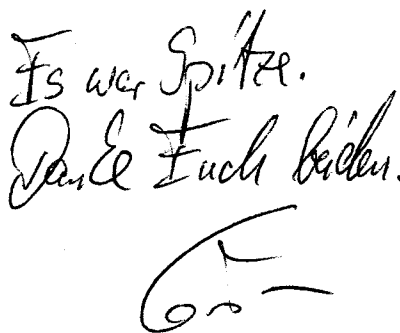 Es war Spitze.
Danke Euch beiden.